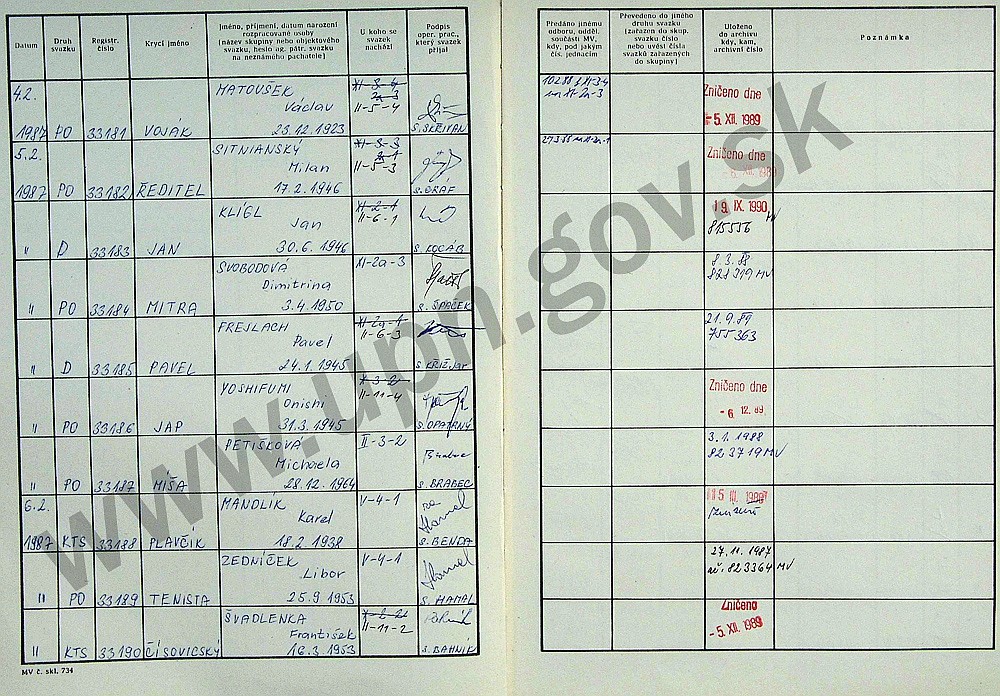 Datum
Druh svazku
Registr. číslo
Krycí jméno
Jméno, příjmení, datum narození rozpracované osoby (název skupiny nebo objektového svazku, heslo ag. pátr. svazku na neznámého pachatele)
U koho se svazek nachází
Podpis oper. prac., který svazek přijal
Předáno jinému odboru, odděl. součásti MV, kdy, pod jakým čís. jednacím
Převedeno do jiného druhu svazku (zařazen do skup. svazku číslo nebo uvést čísla svazků zařazených do skupiny)
Uloženo do archivu kdy, kam, archivní číslo
Poznámka
4.2. 1987 PO 33181 VOJÁK MATOUŠEK Václav 23.12.1923 XI-3-4 2a-3 II-5-4 S. SKŘIVAN Zničeno dne -5. XII. 1989
5.2. 1987 PO 33182 ŘEDITEL SITNIANSKÝ Milan 17.2.1946 XI-3-3 2a-1 II-5-3 S. GRÁF Zničeno dne
" D 33183 JAN KLÍGL Jan 30.6.1946 XI-2-1 II-6-1 S. KOCÁB 19. IX. 1990 815556 MV
" PO 33184 MITRA SVOBODOVÁ Dimitrina 3.4.1950 XI-2a-3 S. ŠPAČEK 8.3.88 828719 MV
" D 33185 PAVEL FREJLACH Pavel 24.1.1945 XI-2a-1 II-6-3 21.9.89 755363
" PO 33186 JAP YOSHIFUMI Onishi 31.3.1945 X-3-2 II-11-4 S. OPATRNÝ Zničeno dne -6. 12. 89
" PO 33187 MÍŠA PETISKOVÁ Michaela 28.12.1964 II-3-2 S. BRABEC 3.1.1988 823719 MV
6.2. 1987 KTS 33188 PLAVČÍK MANDLÍK Karel 18.2.1938 V-4-1 S. BENDA
" PO 33189 TENISTA ZEDNÍČEK Libor 25.9.1953 V-4-1 S. HAMAL 27.11.1987 ač. 823364 MV
" KTS 33190 ČÍSOVICSKÝ ŠVADLENKA František 16.3.1953 II-11-2 S. BAHNÍK Zničeno -5. XII. 1989
MV č. skl. 734
www.upn.gov.sk